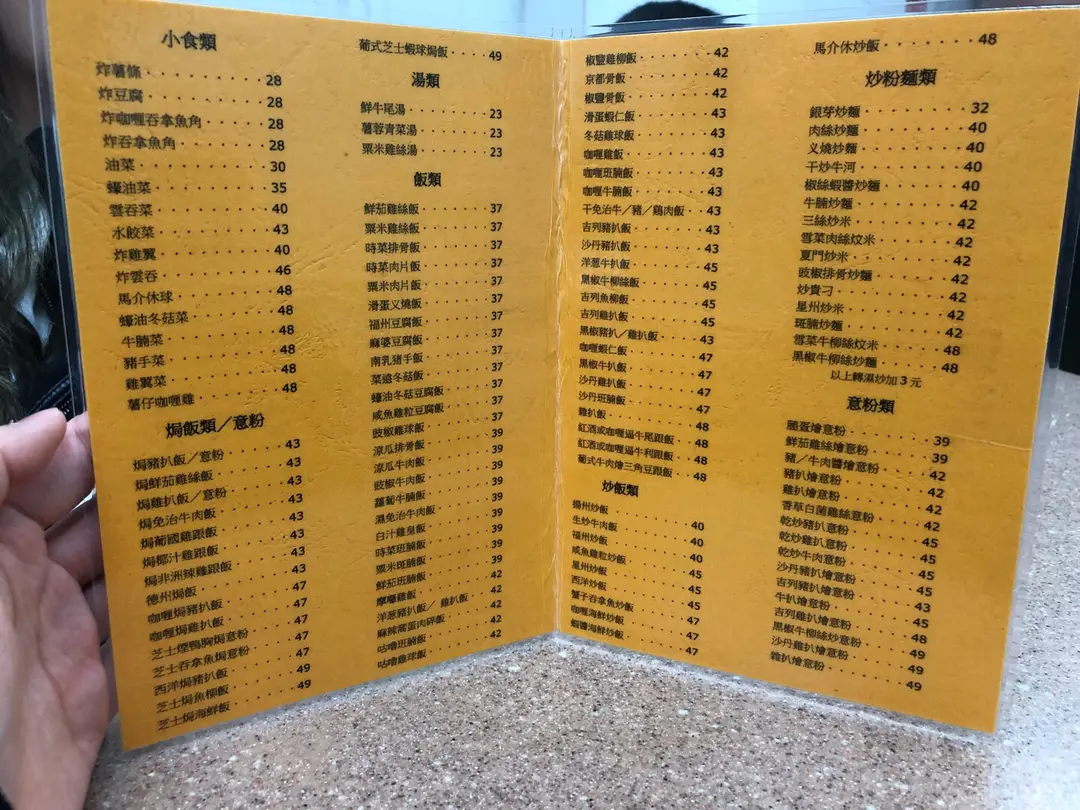 小食類
炸薯條 28
炸豆腐 28
炸咖喱吞拿魚角 28
炸吞拿魚角 28
油菜 30
蠔油菜 35
雲吞菜 40
水餃菜 43
炸雞翼 40
炸雲吞 46
馬介休球 48
蠔油冬菇菜 48
牛腩菜 48
豬手菜 48
雞翼菜 48
薯仔咖喱雞 48
焗飯類／意粉
焗豬扒飯／意粉 43
焗鮮茄雞絲飯 43
焗雞扒飯／意粉 43
焗免治牛肉飯 43
焗葡國雞跟飯 43
焗椰汁雞跟飯 43
焗非洲辣雞跟飯 43
德州焗飯 43
咖喱焗豬扒飯 47
咖喱焗雞扒飯 47
芝士煙鴨胸焗意粉 47
芝士吞拿魚焗意粉 47
西洋焗豬扒飯 49
芝士焗魚柳飯 49
芝士焗海鮮飯 49
葡式芝士蝦球焗飯 49
湯類
鮮牛尾湯 23
薯蓉青菜湯 23
粟米雞絲湯 23
飯類
鮮茄雞絲飯 37
粟米雞絲飯 37
時菜排骨飯 37
時菜肉片飯 37
粟米肉片飯 37
滑蛋义燒飯 37
福州豆腐飯 37
麻婆豆腐飯 37
南乳猪手飯 37
菜遠冬菇飯 37
蠔油冬菇豆腐飯 37
咸魚雞粒豆腐飯 37
豉椒雞球飯 37
涼瓜排骨飯 39
涼瓜牛肉飯 39
豉椒牛肉飯 39
蘿蔔牛腩飯 39
濕免治牛肉飯 39
白汁雞皇飯 39
時菜班腩飯 39
粟米斑腩飯 39
鮮茄班腩飯 39
摩囉雞飯 42
洋葱豬扒飯／雞扒飯 42
麻辣窩蛋肉碎飯 42
咕嚕班腩飯 42
咕嚕雞球飯 42
椒鹽雞柳飯 42
京都骨飯 42
椒鹽骨飯 42
滑蛋蝦仁飯 43
冬菇雞球飯 43
咖喱雞飯 43
咖喱班腩飯 43
咖喱牛腩飯 43
干免治牛／豬／鷄肉飯 43
吉列豬扒飯 43
沙丹豬扒飯 43
洋葱牛扒飯 45
黑椒牛柳絲飯 45
吉列魚柳飯 45
吉列雞扒飯 45
黑椒豬扒／雞扒飯 45
咖喱蝦仁飯 47
黑椒牛扒飯 47
沙丹雞扒飯 47
沙丹班扒飯 47
雞扒飯 48
紅酒或咖喱逼牛尾跟飯 48
紅酒或咖喱逼牛利跟飯 48
葡式牛肉燴三角豆跟飯 48
炒飯類
揚州炒飯 40
生炒牛肉飯 40
福州炒飯 40
咸魚雞粒炒飯 45
星州炒飯 45
西洋炒飯 45
蟹子吞拿魚炒飯 47
咖喱海鮮炒飯 47
蝦醬海鮮炒飯 47
馬介休炒飯 48
炒粉麵類
銀芽炒麵 32
肉絲炒麵 40
义燒炒麵 40
干炒牛河 40
椒絲蝦醬炒麵 40
牛腩炒麵 42
三絲炒米 42
雪菜肉絲炆米 42
夏門炒米 42
豉椒排骨炒麵 42
炒貴刁 42
星州炒米 42
斑腩炒麵 42
雪菜牛柳絲炆米 48
黑椒牛柳絲炒麵 48
以上轉濕炒加３元
意粉類
腿蛋燴意粉 39
鮮茄雞絲燴意粉 39
豬／牛肉醬燴意粉 42
豬扒燴意粉 42
雞扒燴意粉 42
香草白菌雞絲意粉 42
乾炒豬扒意粉 45
乾炒雞扒意粉 45
乾炒牛肉意粉 45
沙丹豬扒燴意粉 45
吉列豬扒燴意粉 43
牛扒燴意粉 45
吉列雞扒燴意粉 48
黑椒牛柳絲炒意粉 49
沙丹雞扒燴意粉 49
雜扒燴意粉 49